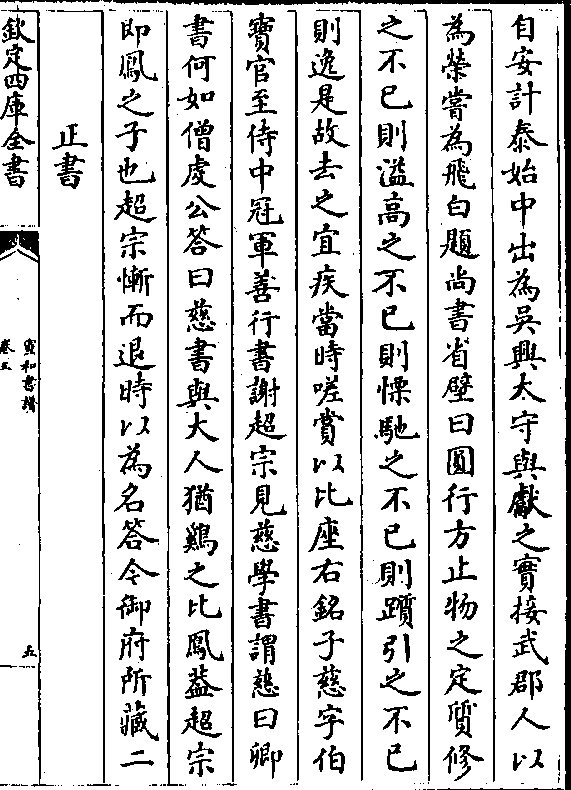 自安計泰始中出為吳興太守與獻之實接武郡人以
為榮嘗為飛白題尚書省壁曰圓行方止物之定質修
之不已則溢高之不已則慄馳之不已則躓引之不已
則逸是故去之宜疾當時嗟賞以比座右銘子慈字伯
寶官至侍中冠軍善行書謝超宗見慈學書謂慈曰卿
書何如僧虔公答曰慈書與大人猶鷄之比鳳葢超宗
即鳳之子也超宗慚而退時以為名答今御府所藏二
正書
欽定四庫全書
宣和書譜
卷五
五